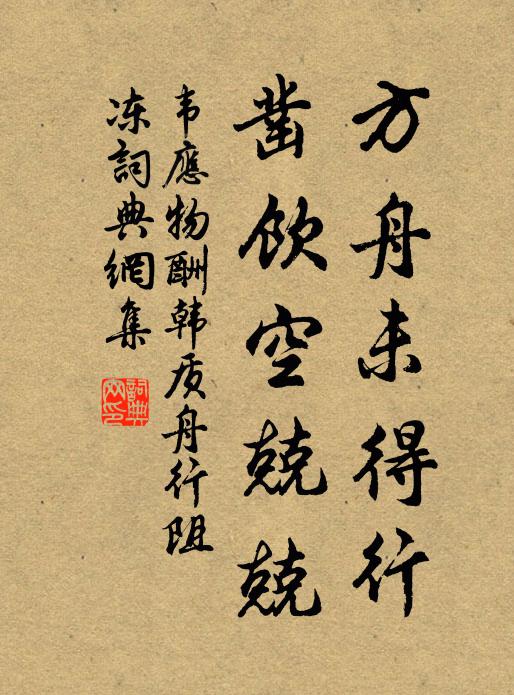 方舟未得行
凿饮空兢兢
韦應物酬韩质舟行阻
冻詞典網集
詞典网印